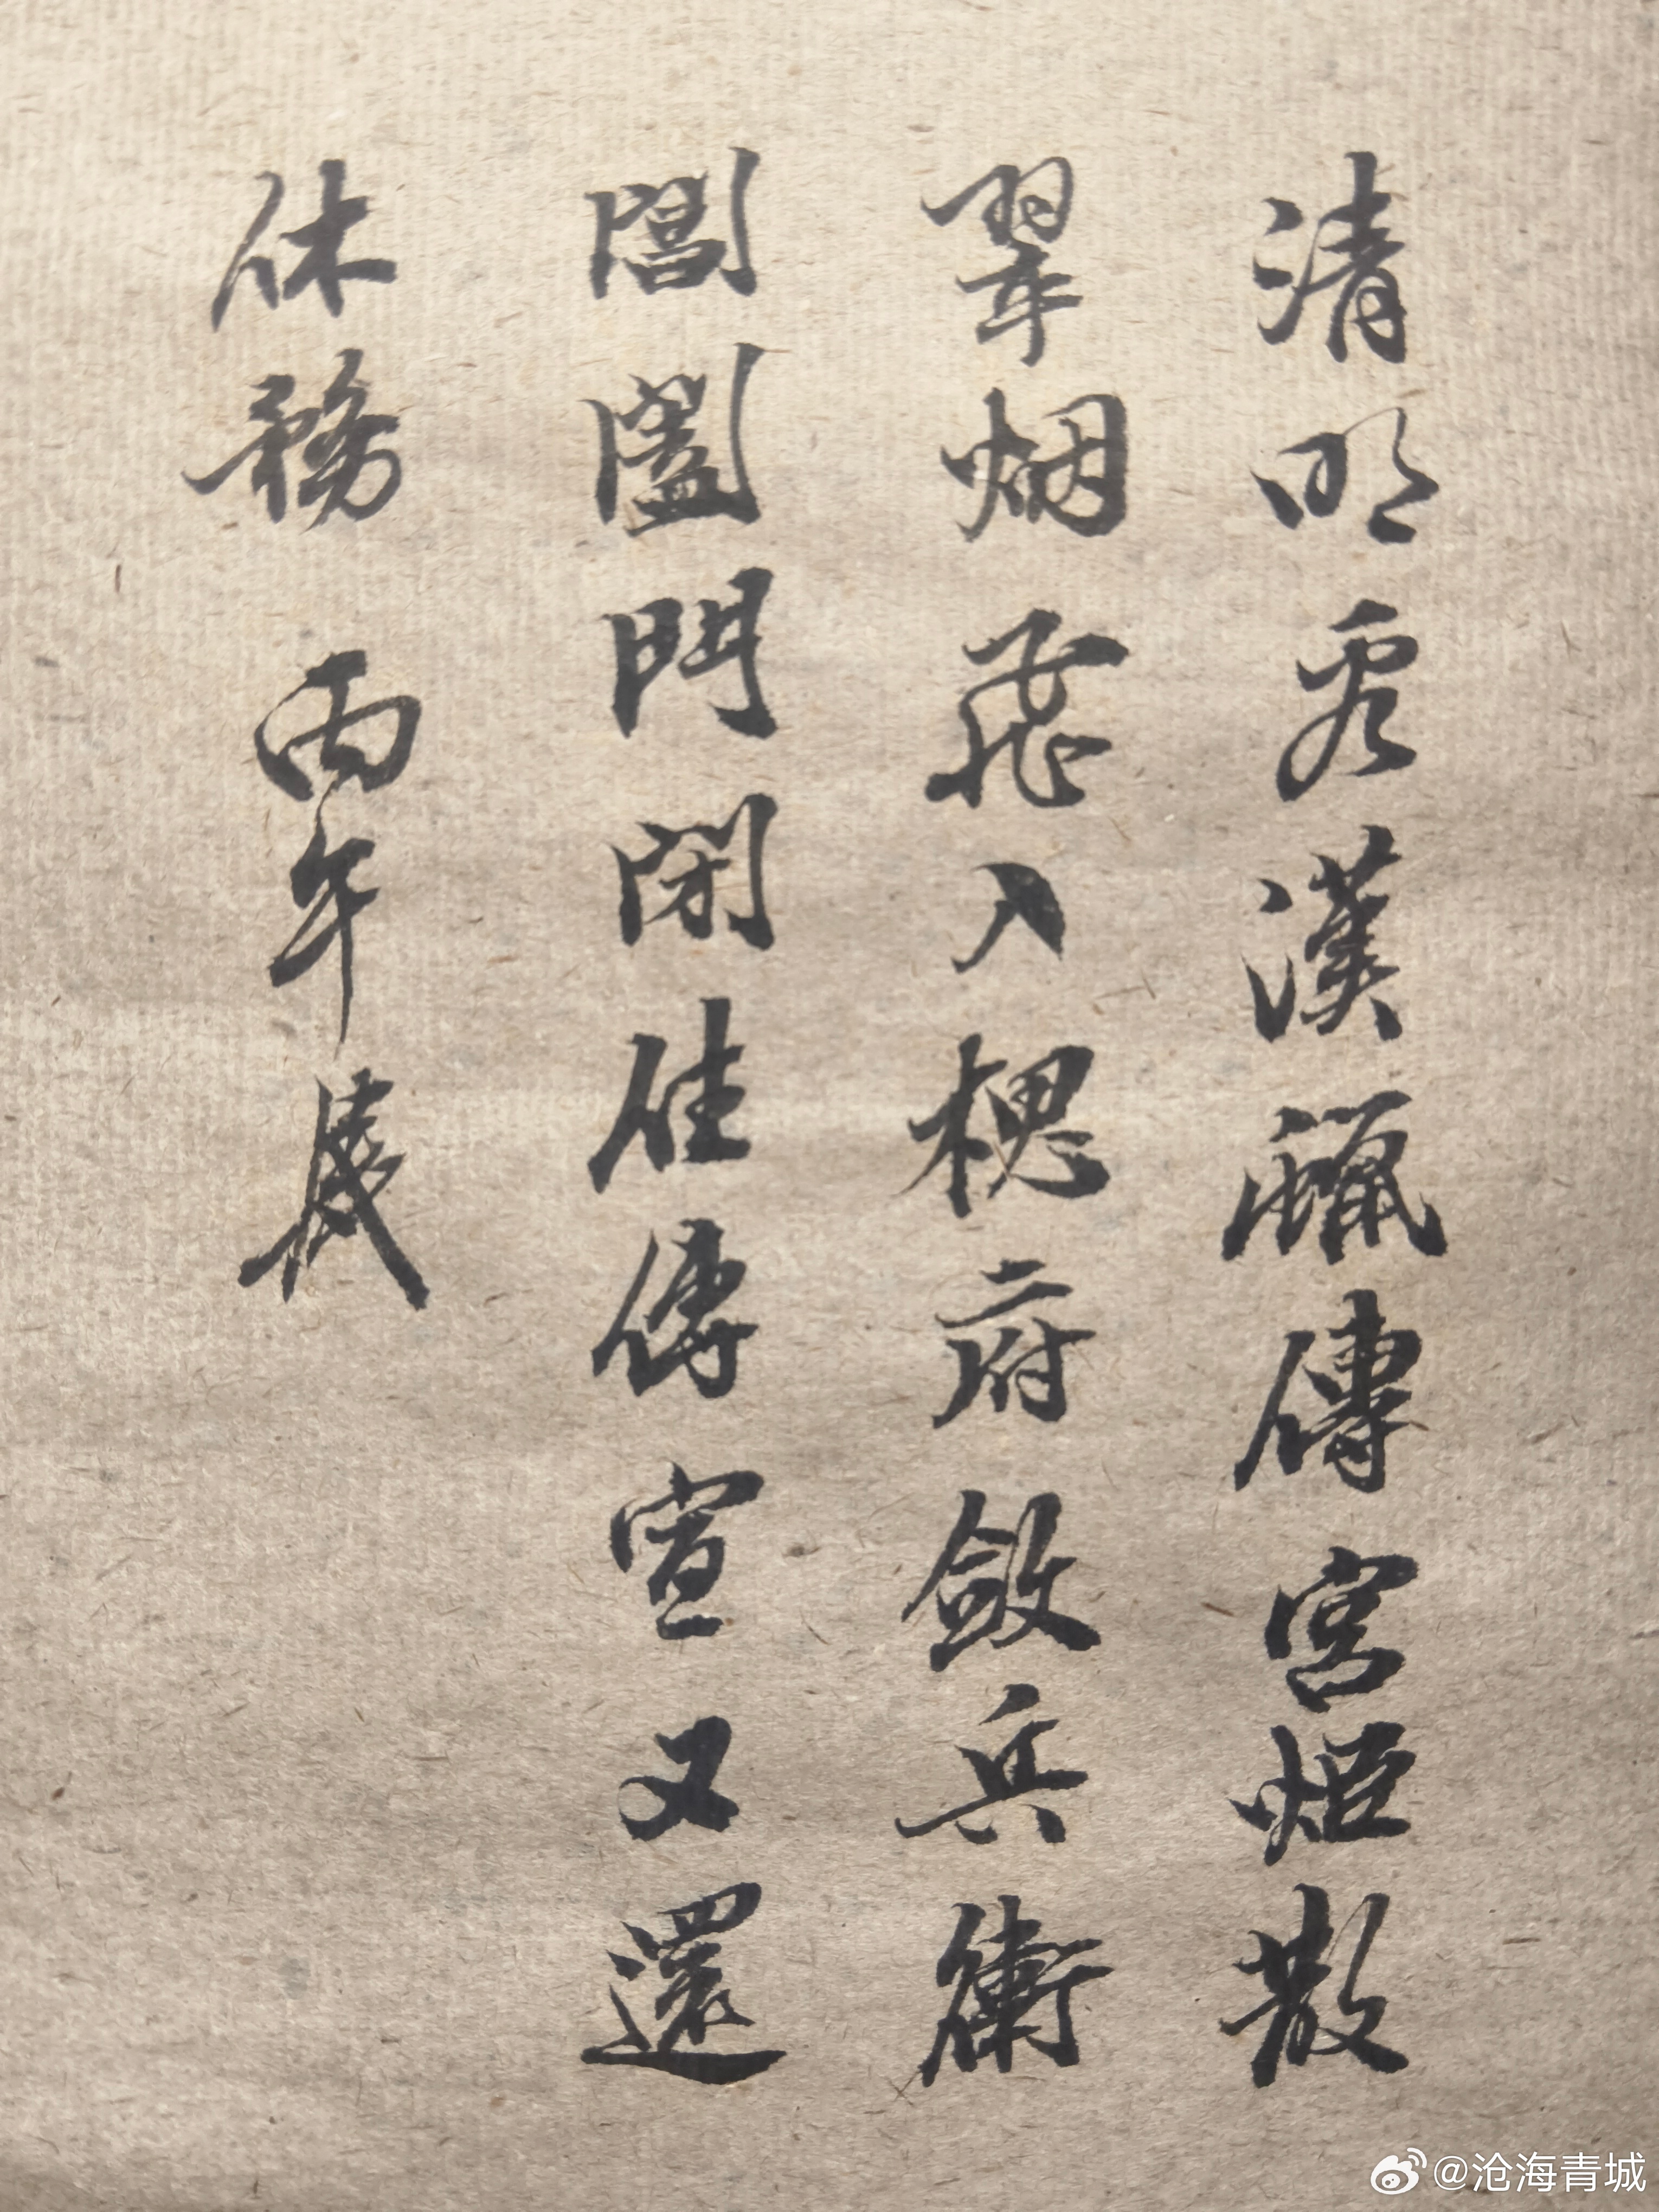 清明看漢蠟傳宮炬散
翠烟飛入槐府斂兵衛
閶闔門開住傳宣又還
休務 丙午歲
@沧海青城